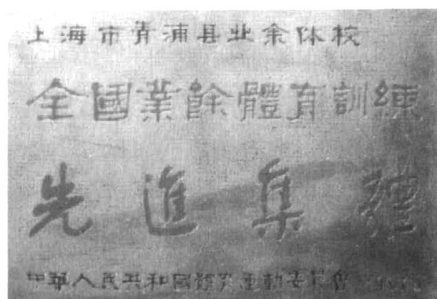 上海市青浦县业余体校
全國業餘體育訓練
先進集體
中華人民共和國體育運動委員會